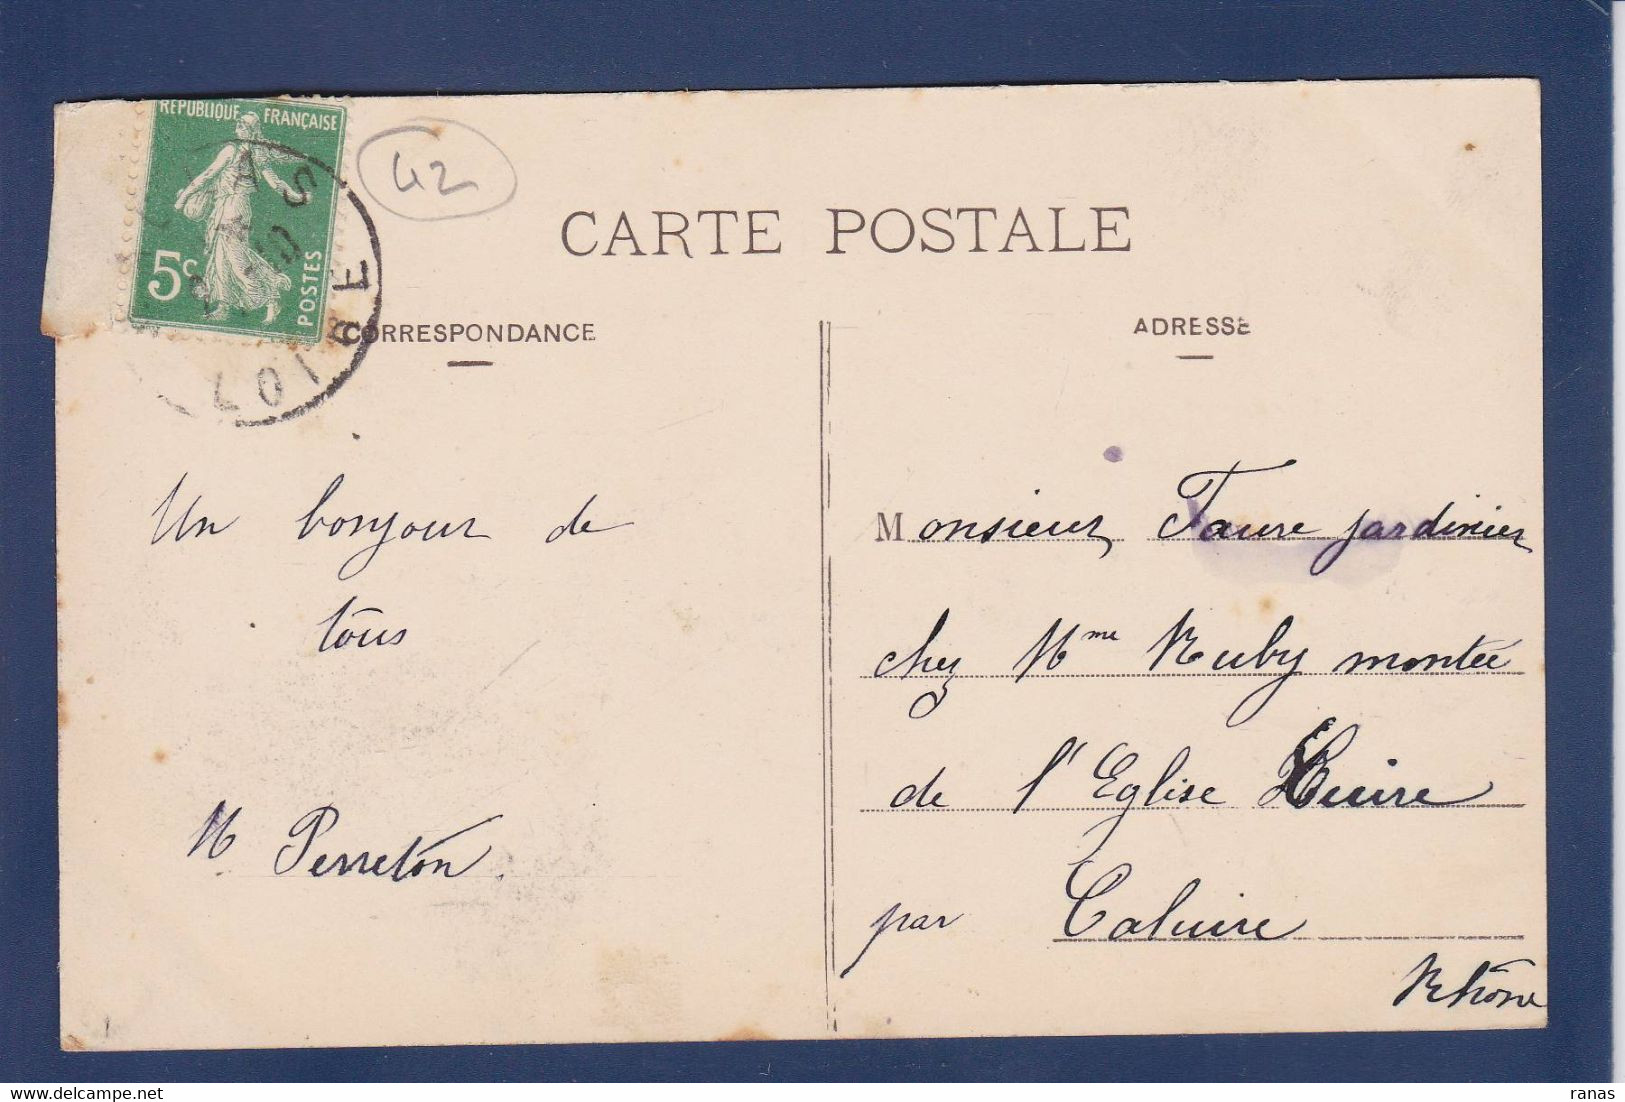 RÉPUBLIQUE FRANÇAISE
5c
POSTES
LOIRE
42
CARTE POSTALE
CORRESPONDANCE
ADRESSE
Un bonjour de
tous
M Perreton.
Monsieur Faure jardinier
chez Mme Ruby montée
de l'Eglise Cuire
par Caluire
Rhône
ranas